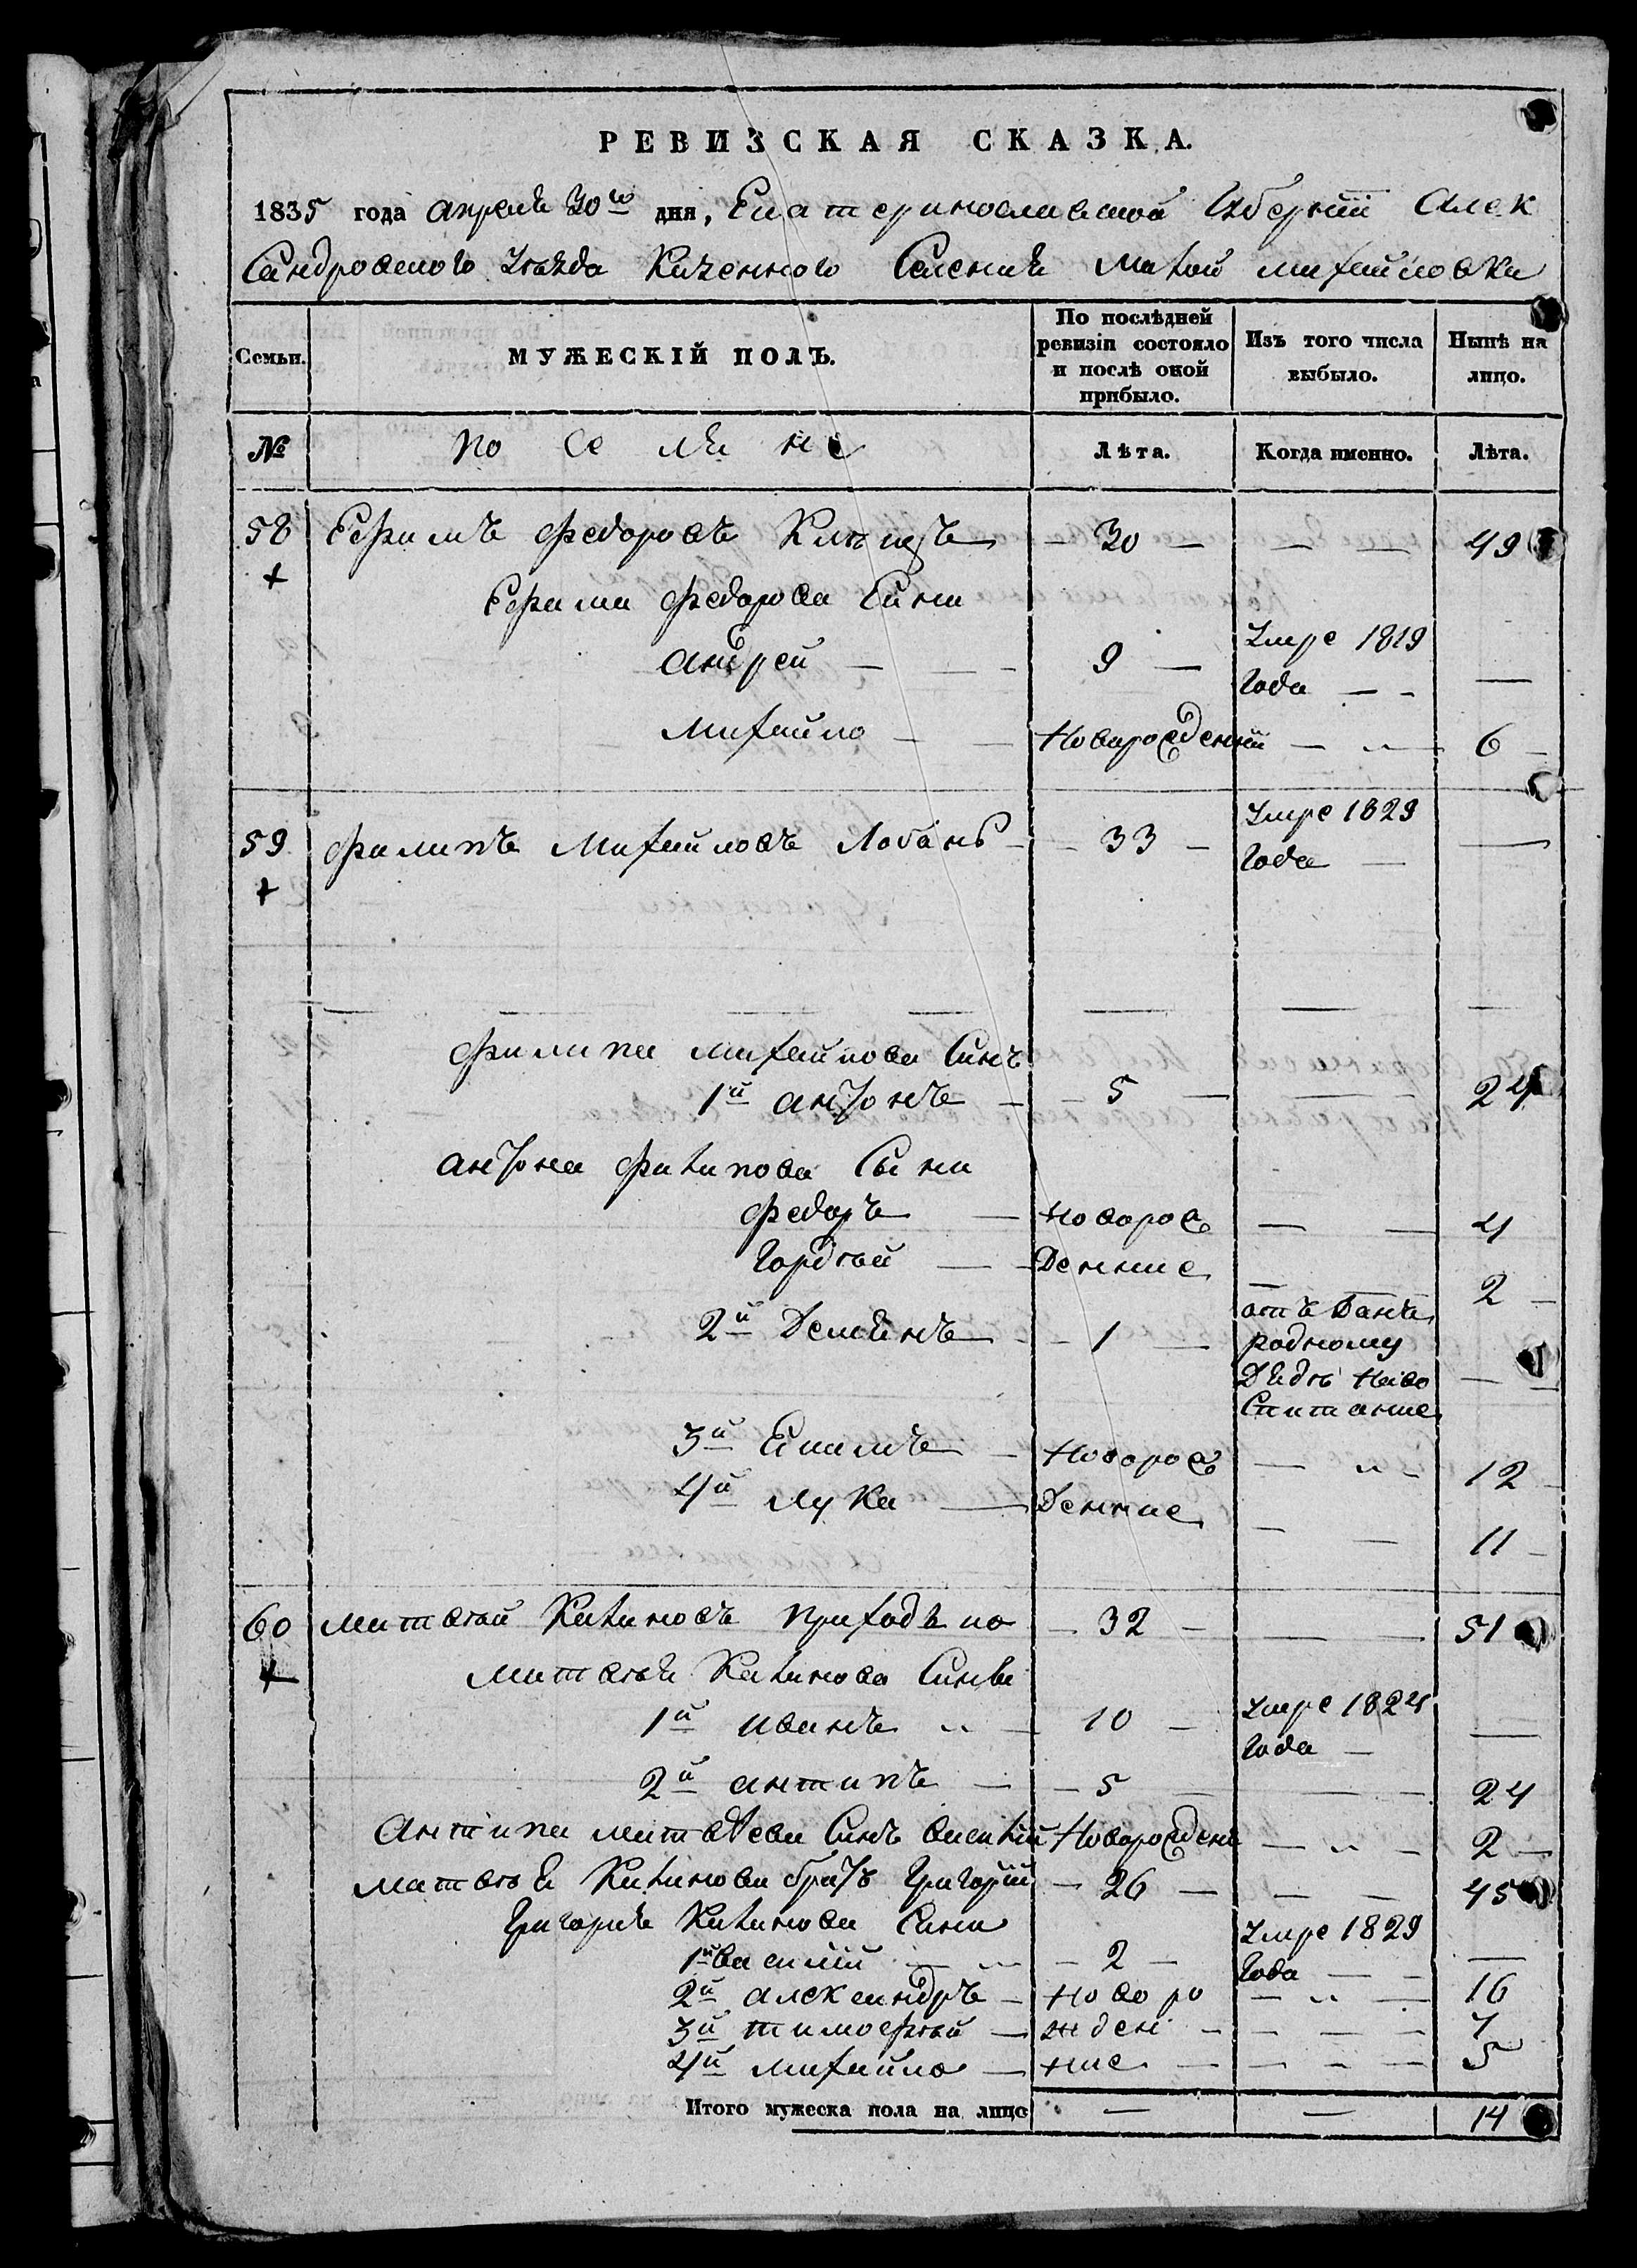 РЕВИЗСКАЯ СКАЗКА.
1835 года апреля 30го дня, Екатеринославской Губернїи Алек
Сандровского Уезда Казенного Селенїя Малой михайловки
Семьи. МУЖЕСКІЙ ПОЛЪ. По послѣдней ревизіи состояло и послѣ оной прибыло. Изъ того числа выбыло. Нынѣ на лицо.
№ по се ля не Лѣта. Когда именно. Лѣта.
58 Ефимъ Федоровъ — 30 — — — 49
Ефима Федорова Сини
андрей — 9 — Умре 1819 года — —
михайло — Новорожденнїй — 〃 — 6
59 филипъ Михайловъ Лобань — 33 — Умре 1829 года — —
филипа михайлова Синъ
1й антонъ — 5 — — 24
антона филипова Сыни
федоръ — Новорож — — 4
Гордѣй — Деннїе — 2
2й Демянъ — 1 — отъ Данъ родному Дядѣ Наво Спитание —
3й Екимъ — Новорож — 〃 — 12
4й лука — Деннїе — — 11
60 матвѣй Калиновъ приходько — 32 — — 51
матвѣя Калинова Сины
1й иванъ 〃 — 10 — Умре 1824 года — —
2й антипъ — 5 — — 24
Антипа матвѣева Синъ Новорожден — 〃 — 2
матвѣя Калинова братъ Григорїй — 26 — — — 45
Григория Калинова Сини
1й василїй — 2 — Умре 1829 года — —
2й александръ — Ново ро — 〃 — 16
3й тимофѣй — жден — — — 7
4й михайло — ние — — — 5
Итого мужеска пола на лицо — — 14